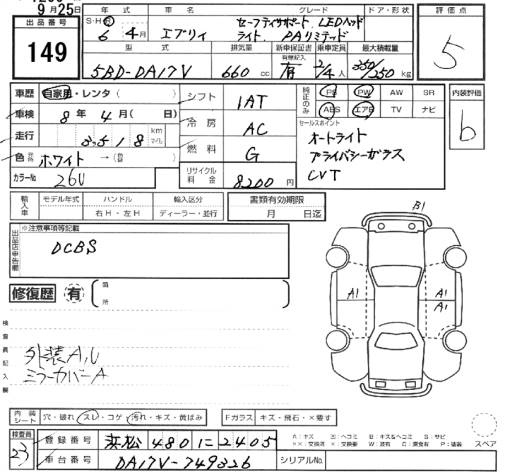 9月25日
出品番号 149
年式 車名 グレード ドア・形状 評価点
S・H・R 6年4月 エブリイ セーフティサポート LEDヘッドライト、PAリミテッド 5
型式 排気量 新車保証書 乗車定員 最大積載量
5BD-DA17V 660cc 有 2/4人 350/250kg
車歴 自家用・レンタ( ) シフト 1AT 純正のみ PS PW AW SR 内装評価
車検 8年4月( 日) 冷房 AC ABS エアB TV ナビ b
走行 km マイル 燃料 G セールスポイント
色 ホワイト →( ) オートライト
カラーNo. 26U リサイクル料金 8200円 プライバシーガラス
CVT
輸入車 モデル年式 ハンドル 輸入区分 書類有効期限
右H・左H ディーラー・並行 月 日迄
※注意事項等記載
DCBS
修復歴 有 箇所
B1
A1 A1
検査員記入欄
外装A,U
ミラーカバーA
内装シート 穴・破れ スレ・コゲ 汚れ・キズ・黄ばみ Fガラス キズ・飛石・×要す
検査員 23
登録番号 浜松 480 に 2405
車台番号 DA17V-749326 シリアルNo.
スペア